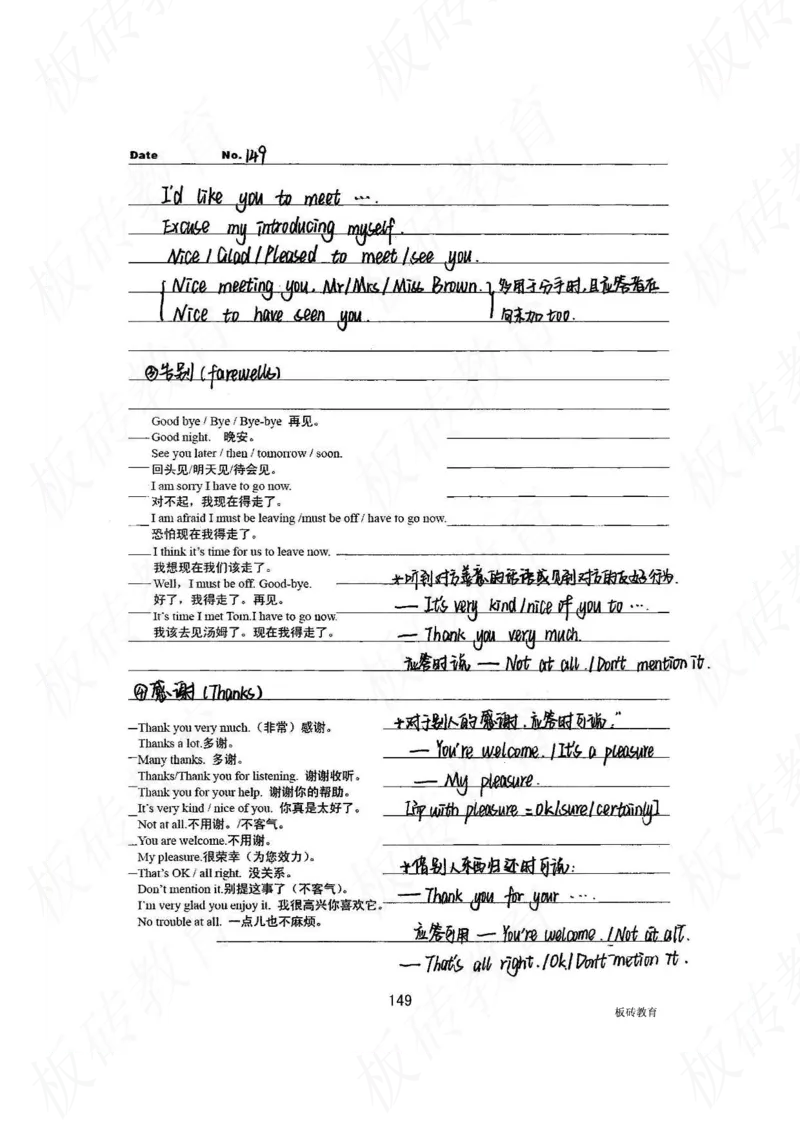 Date No. 149
I'd like you to meet ….
Excuse my introducing myself.
Nice / Glad / Pleased to meet / see you.
Nice meeting you. Mr / Mrs / Miss Brown. 多用于分手时,且应答者在
Nice to have seen you. 句末加too.
③告别(farewells)
Good bye / Bye / Bye-bye 再见。
Good night. 晚安。
See you later / then / tomorrow / soon.
回头见/明天见/待会见。
I am sorry I have to go now.
对不起,我现在得走了。
I am afraid I must be leaving /must be off / have to go now.
恐怕现在我得走了。
I think it's time for us to leave now.
我想现在我们该走了。
Well, I must be off. Good-bye.
好了,我得走了。再见。
It's time I met Tom.I have to go now.
我该去见汤姆了。现在我得走了。
*听到对方善意的话语或见到对方的友好行为.
— It's very kind / nice of you to ….
— Thank you very much.
应答时说 — Not at all. / Don't mention it.
④感谢(Thanks)
Thank you very much.(非常)感谢。
Thanks a lot.多谢。
Many thanks. 多谢。
Thanks/Thank you for listening. 谢谢收听。
Thank you for your help. 谢谢你的帮助。
It's very kind / nice of you. 你真是太好了。
Not at all.不用谢。/不客气。
You are welcome.不用谢。
My pleasure.很荣幸(为您效力)。
That's OK / all right. 没关系。
Don't mention it.别提这事了(不客气)。
I'm very glad you enjoy it. 我很高兴你喜欢它。
No trouble at all. 一点儿也不麻烦。
*对于别人的感谢,应答时可说:"
— You're welcome. / It's a pleasure
— My pleasure.
with pleasure = ok / sure / certainly]
*借别人东西归还时可说:
— Thank you for your ….
应答可用 — You're welcome. / Not at all.
— That's all right. / Ok / Don't metion it.
149
板砖教育
板砖教育